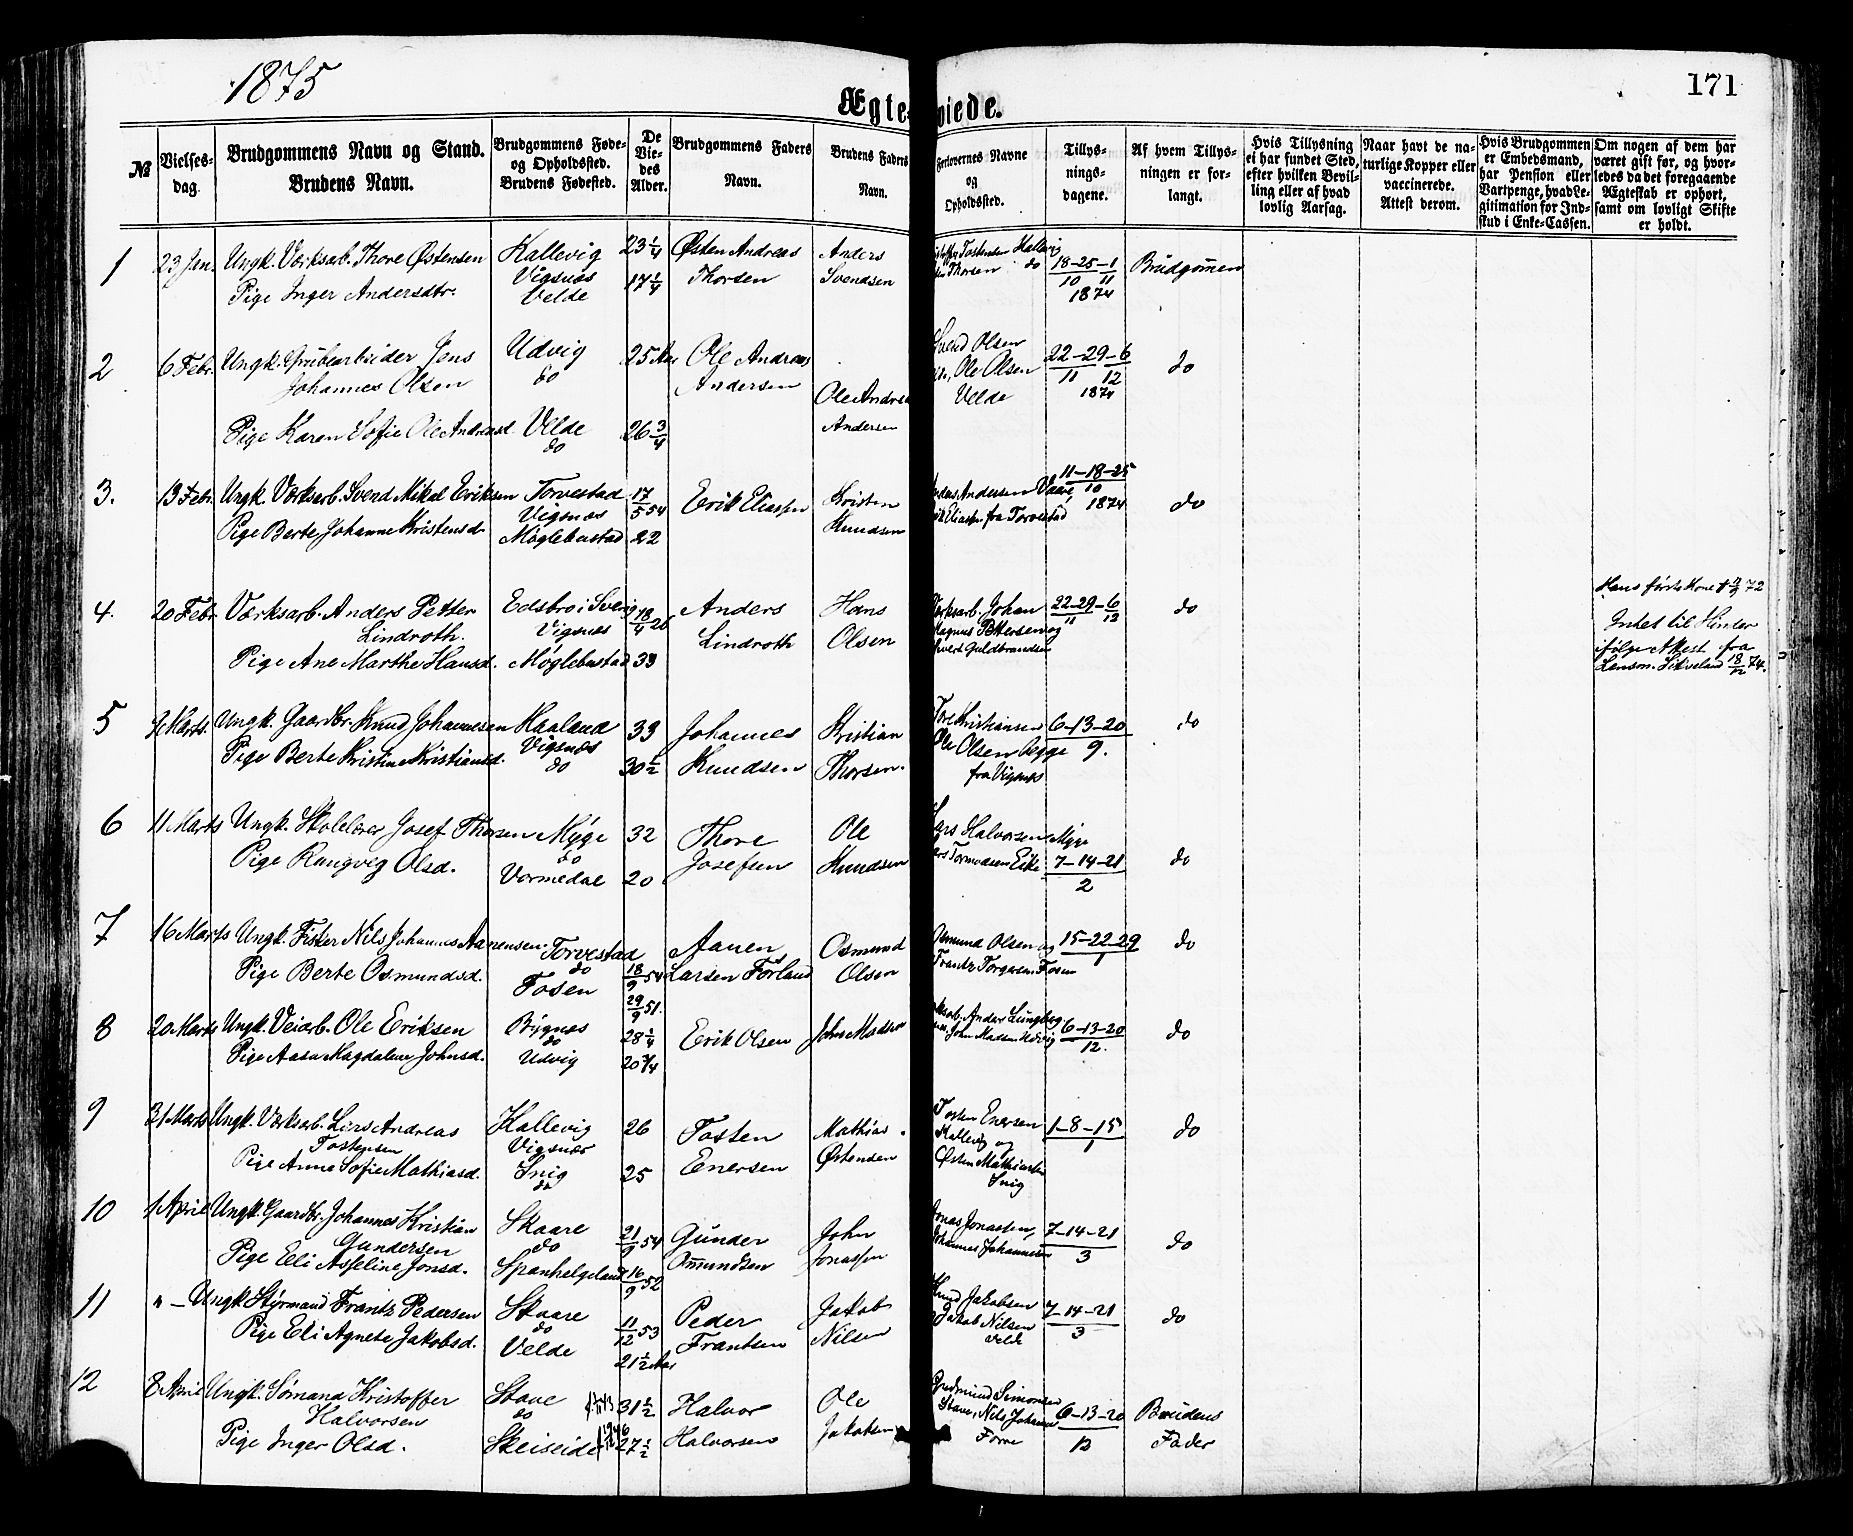 1875
171
Ægteviede.
№
Vielses-
dag.
Brudgommens Navn og Stand.
Brudens Navn.
Brudgommens Føde-
og Opholdssted.
Brudens Fødested.
De
Vie-
des
Alder.
Brudgommens Faders
Navn.
Brudens Faders
Navn.
Forlovernes Navne
og
Opholdssted.
Tillys-
nings-
dagene.
Af hvem Tillys-
ningen er for-
langt.
Hvis Tillysning
ei har fundet Sted,
efter hvilken Bevil-
ling eller af hvad
lovlig Aarsag.
Naar havt de na-
turlige Kopper eller
vaccinerede.
Attest derom.
Hvis Brudgommen
er Embedsmand,
har Pension eller
Vartpenge, hvad Le-
gitimation for Ind-
skud i Enke-Cassen.
Om nogen af dem har
været gift før, og hvor-
ledes da det foregaaende
Ægteskab er ophørt,
samt om lovligt Skifte
er holdt.
1 23 Jan. Ungk. Værksarb. Thore Østensen Kallevig 23 1/4 Østen Andreas Anders Tostensen Kallevig
Vigsnæs Thorsen do 18-25-1 Brudgommen
Pige Inger Andersdtr. Velde 17 1/4 Thorsen Svendsen 10 11
1874
2 6 Febr. Ungk. Grubearbeider Jens Udvig 25 Aar Ole Andreas Svend Olsen 22-29-6 do
Johannes Olsen do Andersen Ole Andreas Ole Olsen 11 12
Velde 1874
Pige Karen Sofie Ole Andreasd. Velde 26 3/4 Andersen
do
3. 13 Febr. Ungk. Værksarb. Svend Mikal Eriksen Torvestad 17/5 54 Erik Eliassen Kristen Andersen 11-18-25 do
Vigsnæs Knudsen Eliassen fra Torvestad 10 1874
Pige Berte Johanne Kristensd. Møglebustad 22
4. 20 Febr. Værksarb. Anders Petter Edsbro i Sverig 18/4 26 Anders Hans Værksarb. Johan 22-29-6 do Hans første Kone † 72
Lindroth. Vigsnæs Lindroth Olsen Magnus Pettersen og 11 12 Intet til Hinder
Pige Ane Marthe Hansd. Møglebustad 33 Guldbrandsen ifølge Attest fra
Lensm. 18/12 74.
5 Marts. Ungk. Gaardbr. Knud Johannesen Haaland 33 Johannes Kristian Tore Kristiansen 6-13-20 do
Vigsnæs Ole Olsen begge 9.
Pige Berte Kristine Kristiansd. do 30 1/2 Knudsen Thorsen. fra Vigsnæs
6 11 Marts Ungk. Skolelærer Josef Thorsen Myge 32 Thore Ole Lars Halvorsen Myge
do Tormodsen Eike 7-14-21 do
Pige Rangvig Olsd. Vormedal 20 Josefsen Knudsen 2
7 16 Marts Ungk. Fisker Nils Johannes Aanensen Torvestad Aanen Osmund Osmund Olsen og 15-22-29 do
do 1
Pige Berte Osmundsd. Fosen 18/9 54 Larsen Førland Olsen Frantz Torgersen Fosen
29/9 51.
8 20 Marts Ungk. Veiarb. Ole Eriksen Bygnæs 28 1/4 Erik Olsen John Madsen Anders Liungberg 6-13-20 do
do 12.
Pige Aasa Magdalene Johnsd. Udvig 20 3/4 John Madsen Udvig
9 31 Marts Ungk. Værksarb. Lars Andreas Kallevig 26 Tosten Mathias Tosten Enersen 1-8-15 do
Tostensen Vigsnæs Kallevig og 1
Pige Anne Sofie Mathiasd. Snig 25 Enersen Østensen Østen Mathiassen
do Snig
10 1 April Ungk. Gaardbr. Johannes Kristian Skaare 21/9 54 Gunder John Jonas Jonassen, 7-14-21 do
Gundersen do 3
Pige Eli Asseline Jonsd. Spanhelgeland 16/9 52 Omundsen Jonassen Johannes Johannesen
11 " - Ungk. Styrmand Frants Pedersen Skaare 11/12 53 Peder Jakob Knud Jakobsen 7-14-21 do
do Jakob Nilsen 3
Pige Eli Agnete Jakobsd. Velde 21 1/2 Aar Frantsen Nilsen Veld
12 8 April Ungk. Sømand Kristoffer Stave 31 1/2 Halvor Ole Gudmund Simonsen
Halvorsen do Stave, Nils Johannes 6-13-20 Brudens
Pige Inger Olsd. Skeiseide 27 1/2 Halvorsen Jakobsen Forre 12 Fader